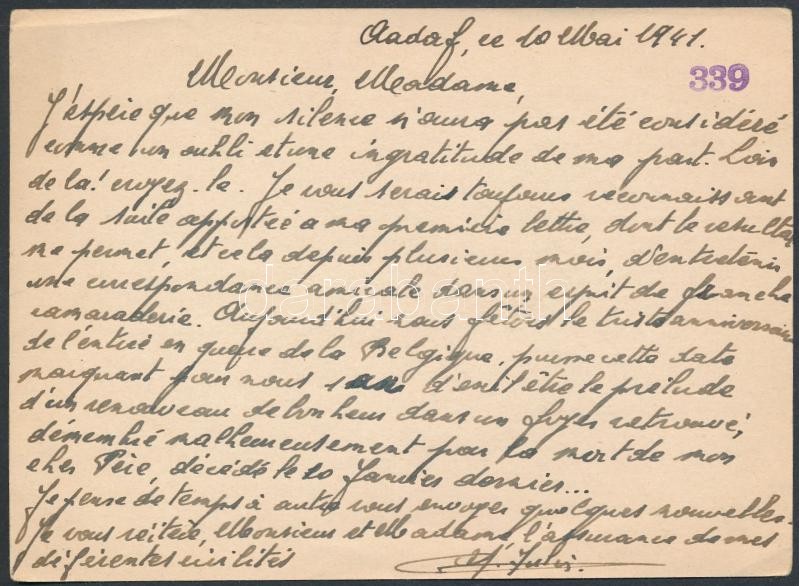 Aadorf, ce 10 Mai 1941.
Monsieur, Madame,
339
J'espère que mon silence n'aura pas été considéré
comme un oubli et une ingratitude de ma part. Loin
de là! croyez-le. Je vous serais toujours reconnaissant
de la suite apportée à ma première lettre, dont le resultat
me permet, et cela depuis plusieurs mois, d'entretenir
une correspondance amicale dans un esprit de franche
camaraderie. Aujourd'hui nous fêtons le triste anniversaire
de l'entrée en guerre de la Belgique, puisse cette date
marquant pour nous 1 an d'exil être le prélude
d'un renouveau de bonheur dans un foyer retrouvé,
démembré malheureusement par la mort de mon
cher Père, décédé le 20 Janvier dernier...
Je pense de temps à autre vous envoyer quelques nouvelles.
Je vous réitère, Monsieur et Madame l'assurance de mes
déférentes civilités
darabanth